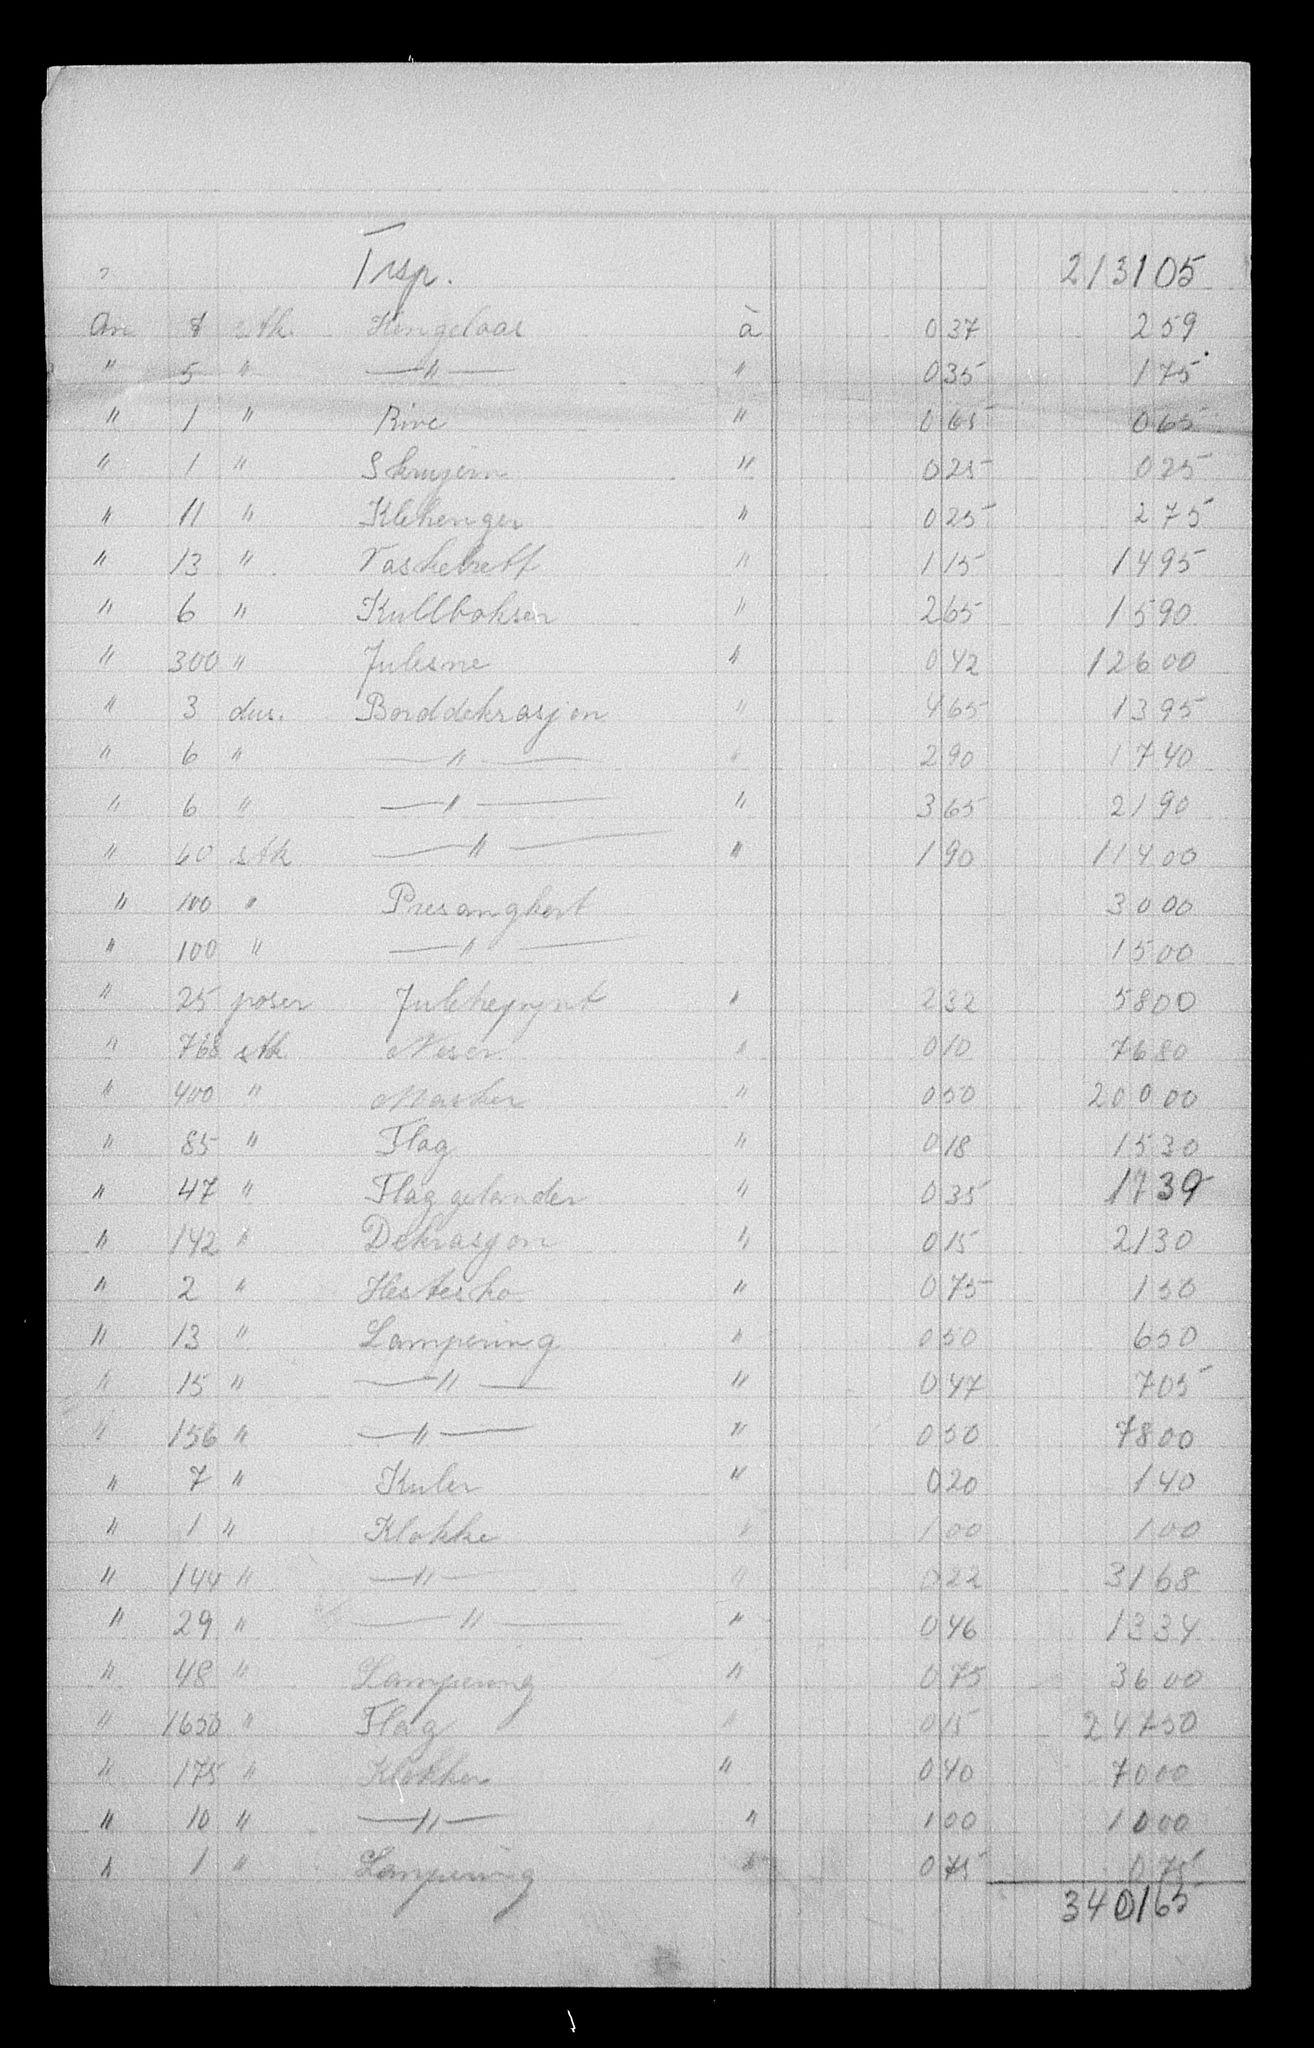 Trsp. 2131 05
An 7 stk. Hengelaas à 0 37 2 59
" 5 " —"— " 0 35 1 75
" 1 " Rive " 0 65 0 65
" 1 " Skrujern " 0 25 0 25
" 11 " Klehenger " 0 25 2 75
" 13 " Vaskebrett " 1 15 14 95
" 6 " Kullboksen " 2 65 15 90
" 300 " Julesne " 0 42 126 00
" 3 dus. Borddekrasjon " 4 65 13 95
" 6 " —"— " 2 90 17 40
" 6 " —"— " 3 65 21 90
" 60 stk —"— " 1 90 114 00
" 100 " Presangkort 30 00
" 100 " —"— 15 00
" 25 poser Julekepynt " 2 32 58 00
" 768 stk Neser " 0 10 76 80
" 400 " Masker " 0 50 200 00
" 85 " Flag " 0 18 15 30
" 47 " Flaggelander " 0 35 17 39
" 142 " Dekrasjon " 0 15 21 30
" 2 " Hestesko " 0 75 1 50
" 13 " Lampering " 0 50 6 50
" 15 " —"— " 0 47 7 05
" 156 " —"— " 0 50 78 00
" 7 " Kuler " 0 20 1 40
" 1 " Klokke " 1 00 1 00
" 144 " —"— " 0 22 31 68
" 29 " —"— " 0 46 13 34
" 48 " Lampering " 0 75 36 00
" 1650 " Flag " 0 15 247 50
" 175 " Klokker " 0 40 70 00
" 10 " —"— " 1 00 10 00
" 1 " Lampering " 0 75 0 75
3401 65